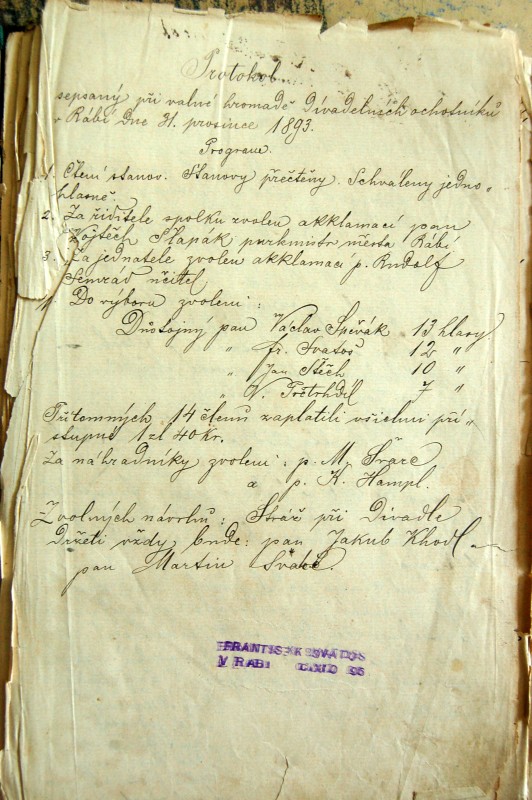 Protokol
sepsaný při valné hromadě Divadelních ochotníků
v Rábí Dne 31. prosince 1893.
Program.
1. Čtení stanov. Stanovy přečteny. Schváleny jedno-
hlasně.
2. Za řiditele spolku zvolen akklamací pan
Vojtěch Šlapák purkmistr města Rábí
3. Za jednatele zvolen akklamací p. Rudolf
Semrád učitel
4. Do výboru zvoleni:
Důstojný pan Václav Spěvák 13 hlasy
" fr. Svatoš 12 "
" Jan Stěch 10 "
" V. 7 "
Přítomných 14 členů zaplatili všichni pří-
stupné 1 zl 40 kr.
Za náhradníky zvoleni: p. M. Švarc
a p. K. Hampl.
Z volných návrhů: Stráž při Divadle
Držeti vždy bude: pan Jakub Khodl
pan Martin Švarc.
FRANTIŠEK SVATOŠ
V RABI